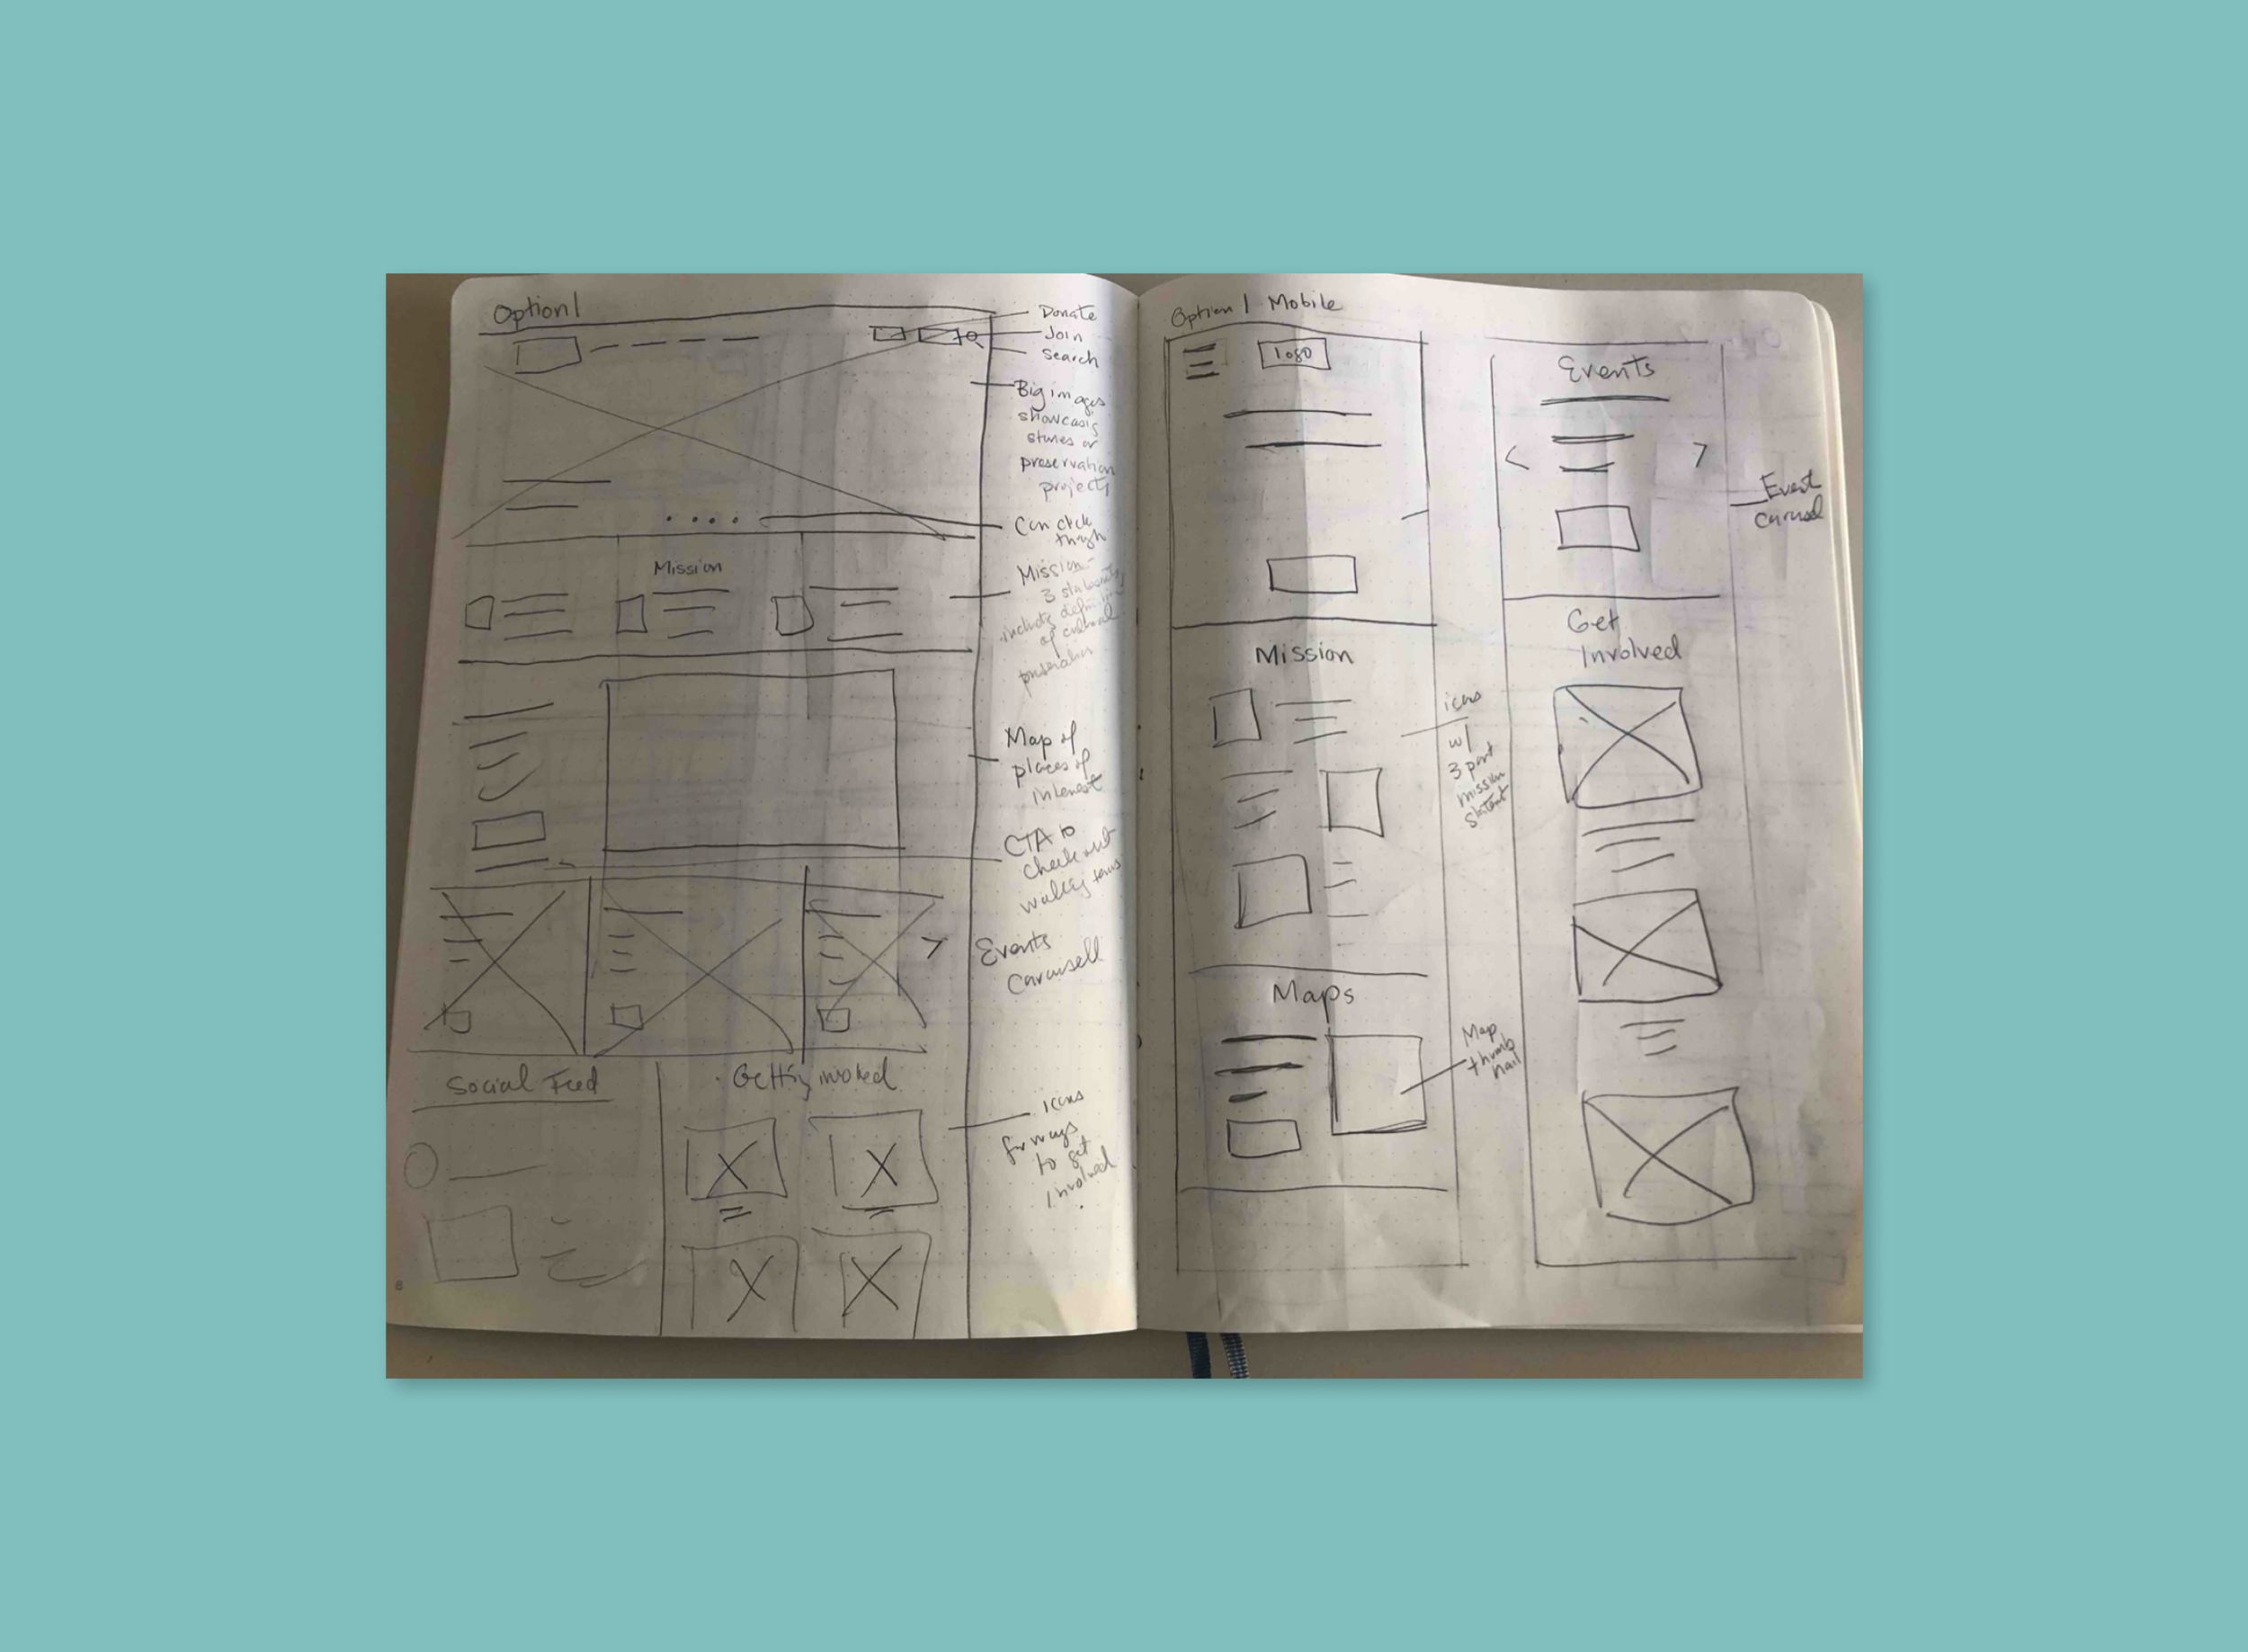 Option 1
Donate
Join
Search
Big images
showcasing
stories or
preservation
projects
Can click
through
Mission
Mission -
3 statements
includes definition
of cultural
preservation
Map of
places of
interest
CTA to
check out
walking tours
Events
Carousell
Social Feed
Getting involved
icons
for ways
to get
involved
8
Option 1 Mobile
logo
Mission
icons
w/
3 part
mission
statement
Maps
Map
thumb
nail
Events
Event
carousel
Get
Involved